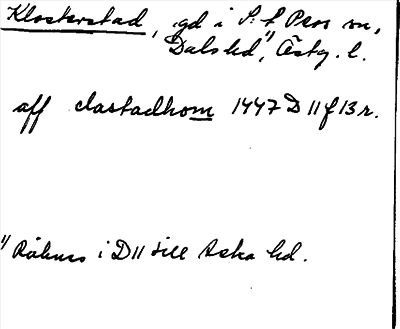 Klosterstad, gd i S:t Pers sn,
Dals hd¹⁾, Östg. l.
aff clastadhom 1447 D 11 f 13 r.
¹⁾ Räknas i D 11 till Aska hd.